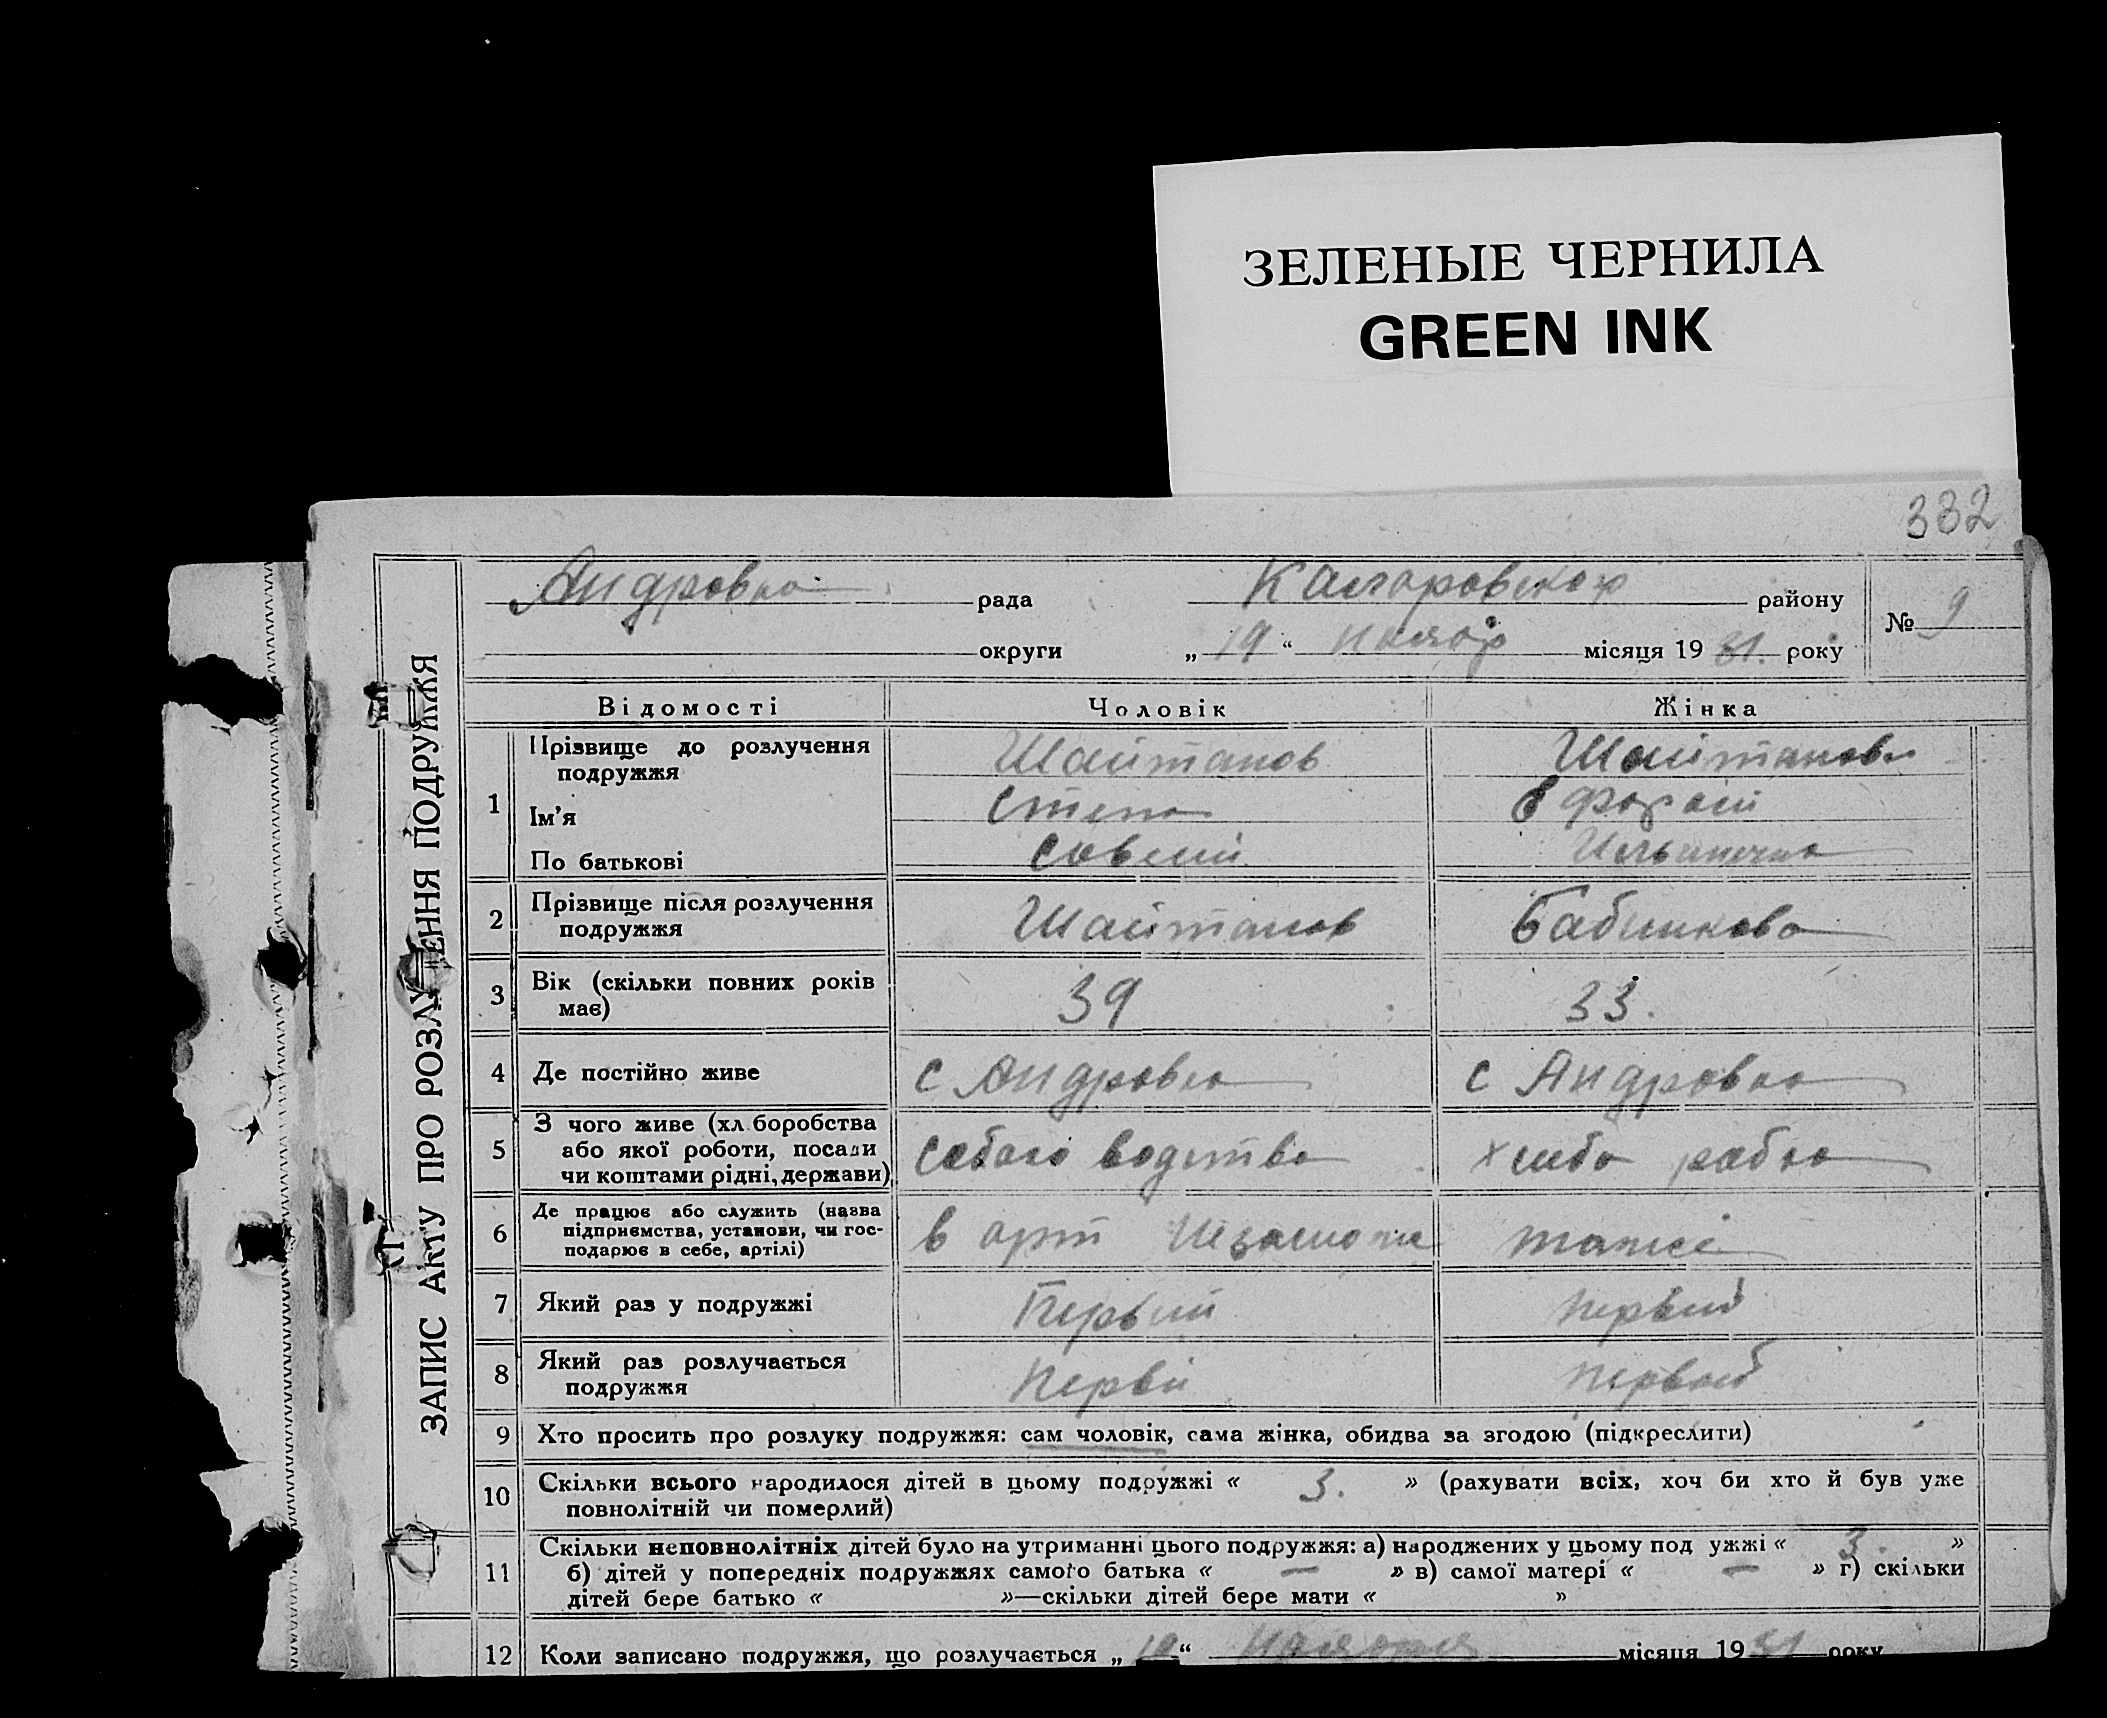 ЗЕЛЕНЫЕ ЧЕРНИЛА
GREEN INK
332
ЗАПИС АКТУ ПРО РОЗЛУЧЕННЯ ПОДРУЖЖЯ
Андровка рада района району № 9
округи „ 19 “ місяця 19 31. року
Відомості Чоловік Жінка
1 Прізвище до розлучення подружжя Шайтанов Шайтанова
Ім’я Степа
По батькові Савелий
2 Прізвище після розлучення подружжя Шайтанов Бабишкова
3 Вік (скільки повних років має) 39 33.
4 Де постійно живе с Андровка с Андровка
5 З чого живе (хл боробства або якої роботи, посади чи коштами рідні, держави) водства хлибо рабка
6 Де працює або служить (назва підприємства, установи, чи господарює в себе, артілі) в арт
7 Який раз у подружжі Первый первый
8 Який раз розлучається подружжя Перви первый
9 Хто просить про розлуку подружжя: сам чоловік, сама жінка, обидва за згодою (підкреслити)
10 Скільки всього народилося дітей в цьому подружжі « 3. » (рахувати всіх, хоч би хто й був уже
повнолітній чи померлий)
11 Скільки неповнолітніх дітей було на утриманні цього подружжя: а) народжених у цьому под ужжі « 3. »
б) дітей у попередніх подружжях самого батька « — » в) самої матері « — » г) скільки
дітей бере батько « »—скільки дітей бере мати « »
12 Коли записано подружжя, що розлучається „ “ місяця 19 31 року